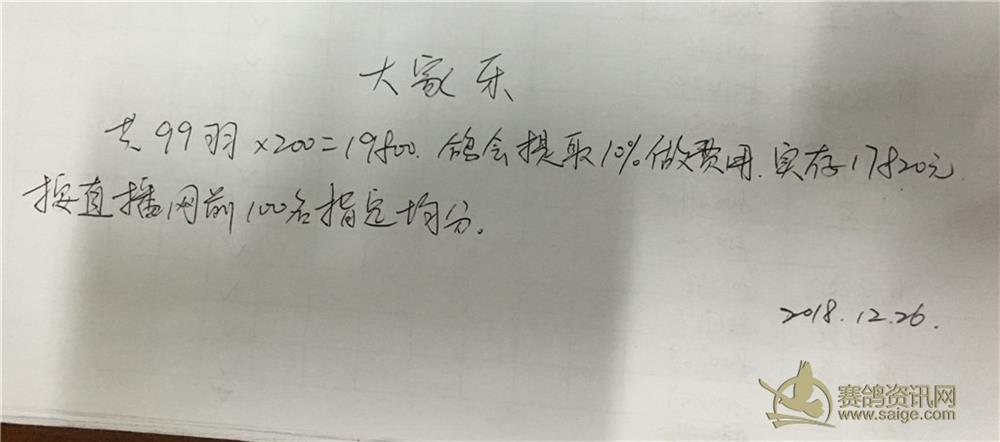 大家乐
共99羽×200=19800.鸽会提取10%做费用.实存17820元.
按直播网前100名指定均分。
2018.12.26.
赛鸽资讯网
www.saige.com